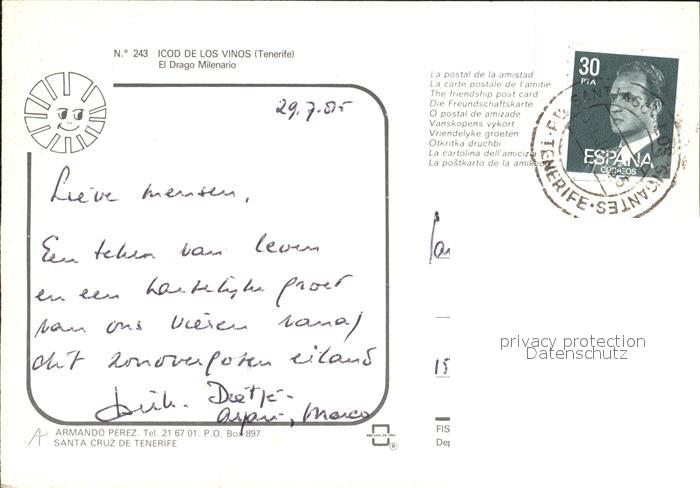 N.° 243 ICOD DE LOS VINOS (Tenerife)
El Drago Milenario
29.7.85
Lieve mensen,
Een teken van leven
en een hartelijke groet
van ons vieren vanaf
dit zonovergoten eiland
Dirk. Dietje.
Arjan, Marco
ARMANDO PEREZ. Tel. 21 67 01. P.O. Box 897
SANTA CRUZ DE TENERIFE
La postal de la amistad
La carte postale de l'amitié
The friendship post card
Die Freundschaftskarte
O postal de amizade
Vanskopens vykort
Vriendelyke groeten
Otkritka druchbi
La cartolina dell'amicizia
La poŝtkarto de la amikeco
30
PTA
ESPAÑA
CORREOS
LOS GIGANTES · TENERIFE ·
privacy protection
Datenschutz
15
FIS
Dep